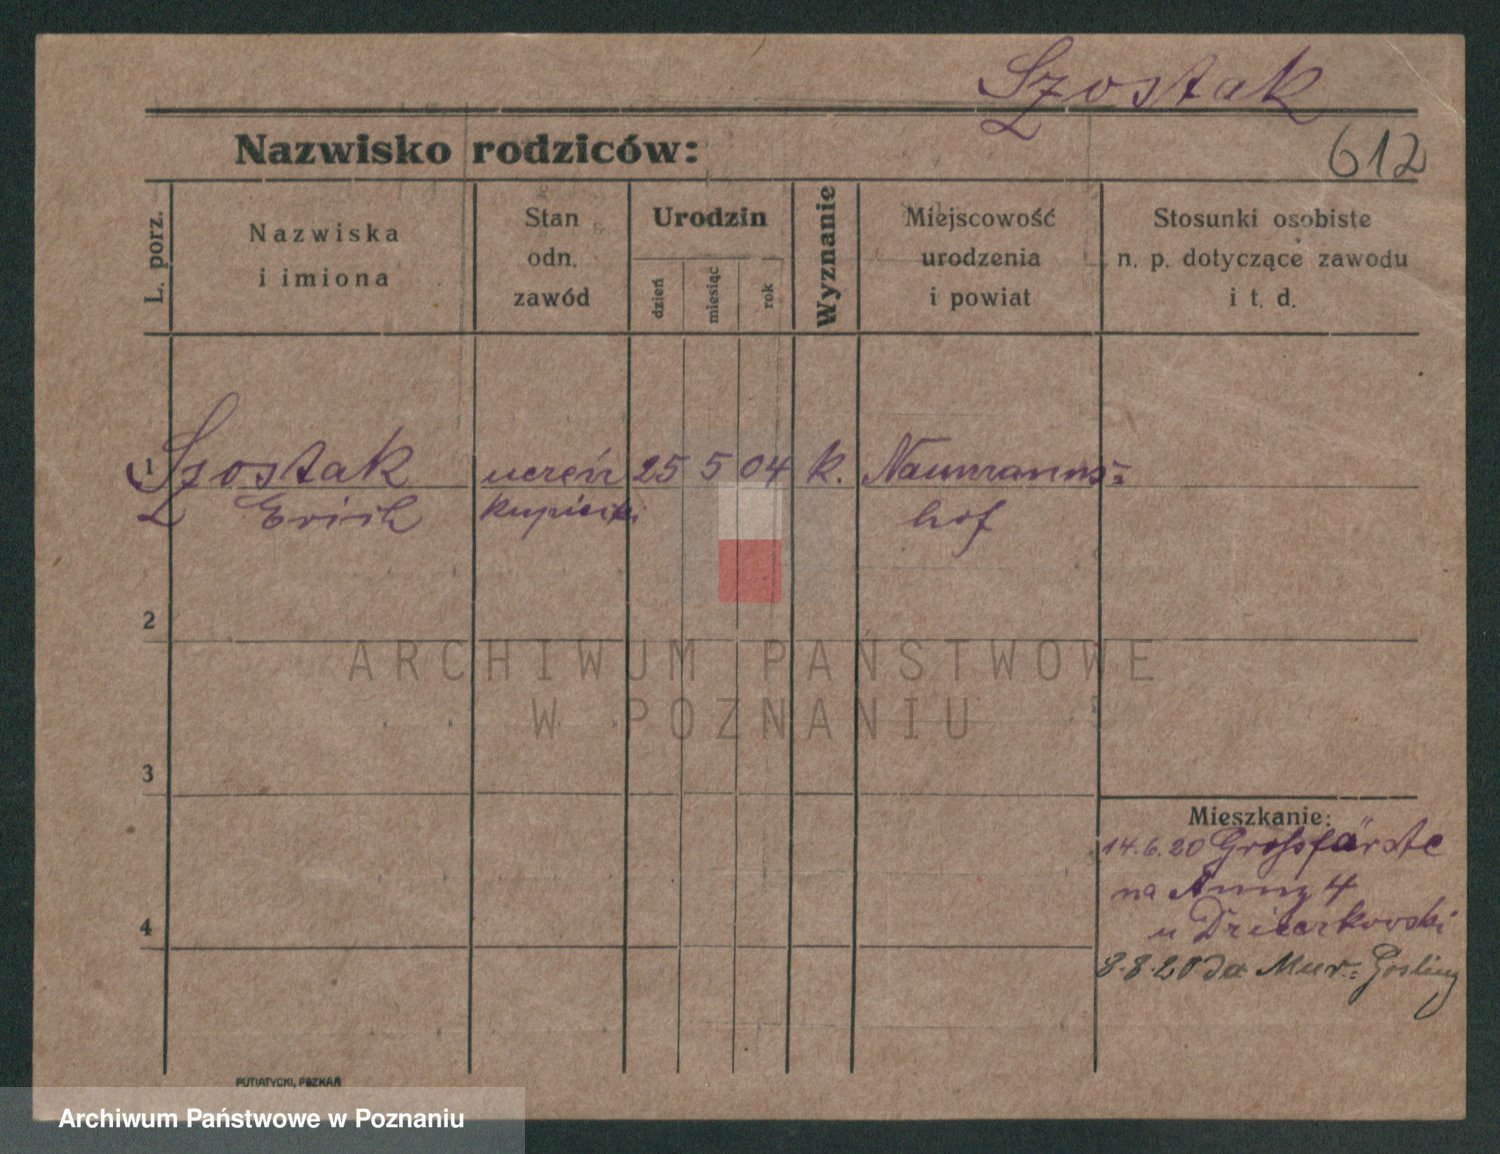 Szostak
612
Nazwisko rodziców:
L. porz.
Nazwiska
i imiona
Stan
odn.
zawód
Urodzin
dzień
miesiąc
rok
Wyznanie
Miejscowość
urodzenia
i powiat
Stosunki osobiste
n. p. dotyczące zawodu
i t. d.
1 Szostak uczeń 25 5 04 k. Naumanns=
Erich kupiecki hof
2
3
4
Mieszkanie:
14.6.20
na Anny 4
u
3.8.20 do Mur.= Gośliny
PUTIATYCKI, POZNAŃ
ARCHIWUM PAŃSTWOWE
W POZNANIU
Archiwum Państwowe w Poznaniu